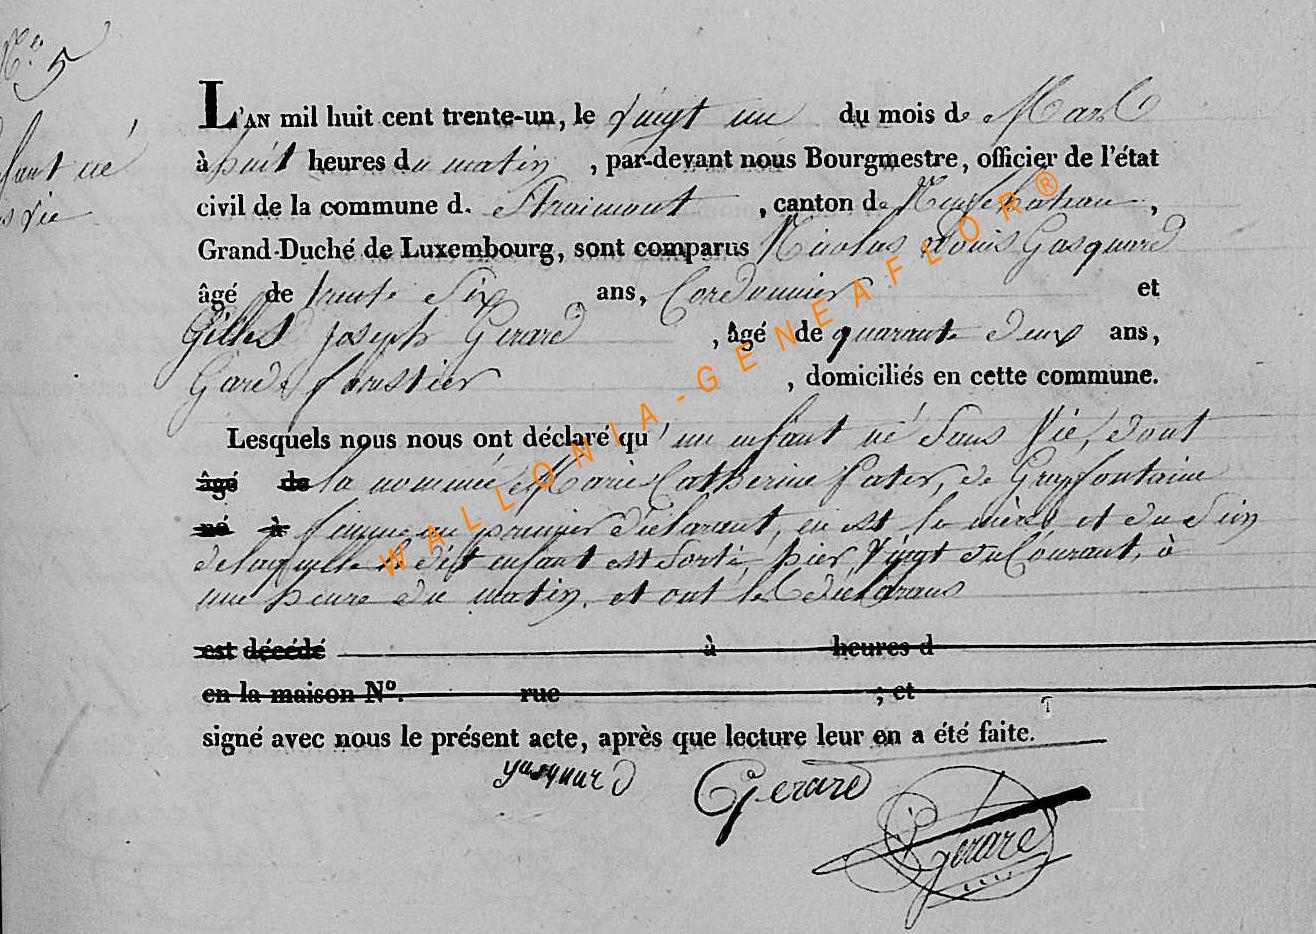 N° 5
fant né
s vie
L'AN mil huit cent trente-un, le vingt un du mois de Mars
à huit heures du matin, par-devant nous Bourgmestre, officier de l'état
civil de la commune d. Straimont, canton de Neufchateau,
Grand-Duché de Luxembourg, sont comparus Nicolas Louis Gasquard
âgé de trente Six ans, Cordonnier et
Gilles Joseph Gerard, âgé de quarante deux ans,
Garde forestier, domiciliés en cette commune.
Lesquels nous nous ont déclaré qu'un enfant né Sans Vie, dont
âgé de la nommée Marie Catherine Pater, de Grapfontaine
né à femme au premier déclarant, en est la mère et du Sein
delaquelle dit enfant est Sorti, hier Vingt du Courant, à
une heure du matin, et ont les déclarans
est décédé à heures d
en la maison N°. rue ; et
signé avec nous le présent acte, après que lecture leur en a été faite.
gasquard Gerard
Gerard
WALLONIA-GENEAFLOR®